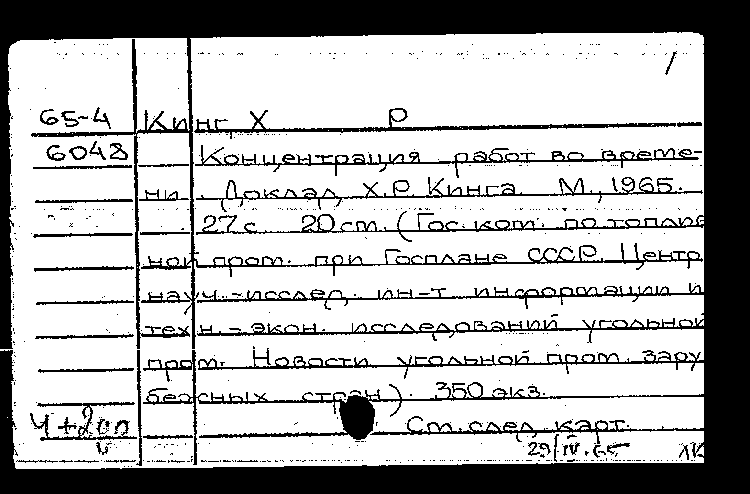 1
65-4 Кинг, Х Р
6048 Концентрация работ во време-
ни. Доклад Х.Р. Кинга. М., 1965.
27 с 20 см. (Гос. ком. по топлив
ной пром. при Госплане СССР. Центр
науч.-исслед. ин-т информации и
техн.-экон. исследований угольной
пром. Новости угольной пром. зару
бежных стран). 350 экз.
Ст. след. карт.
29/IV.65